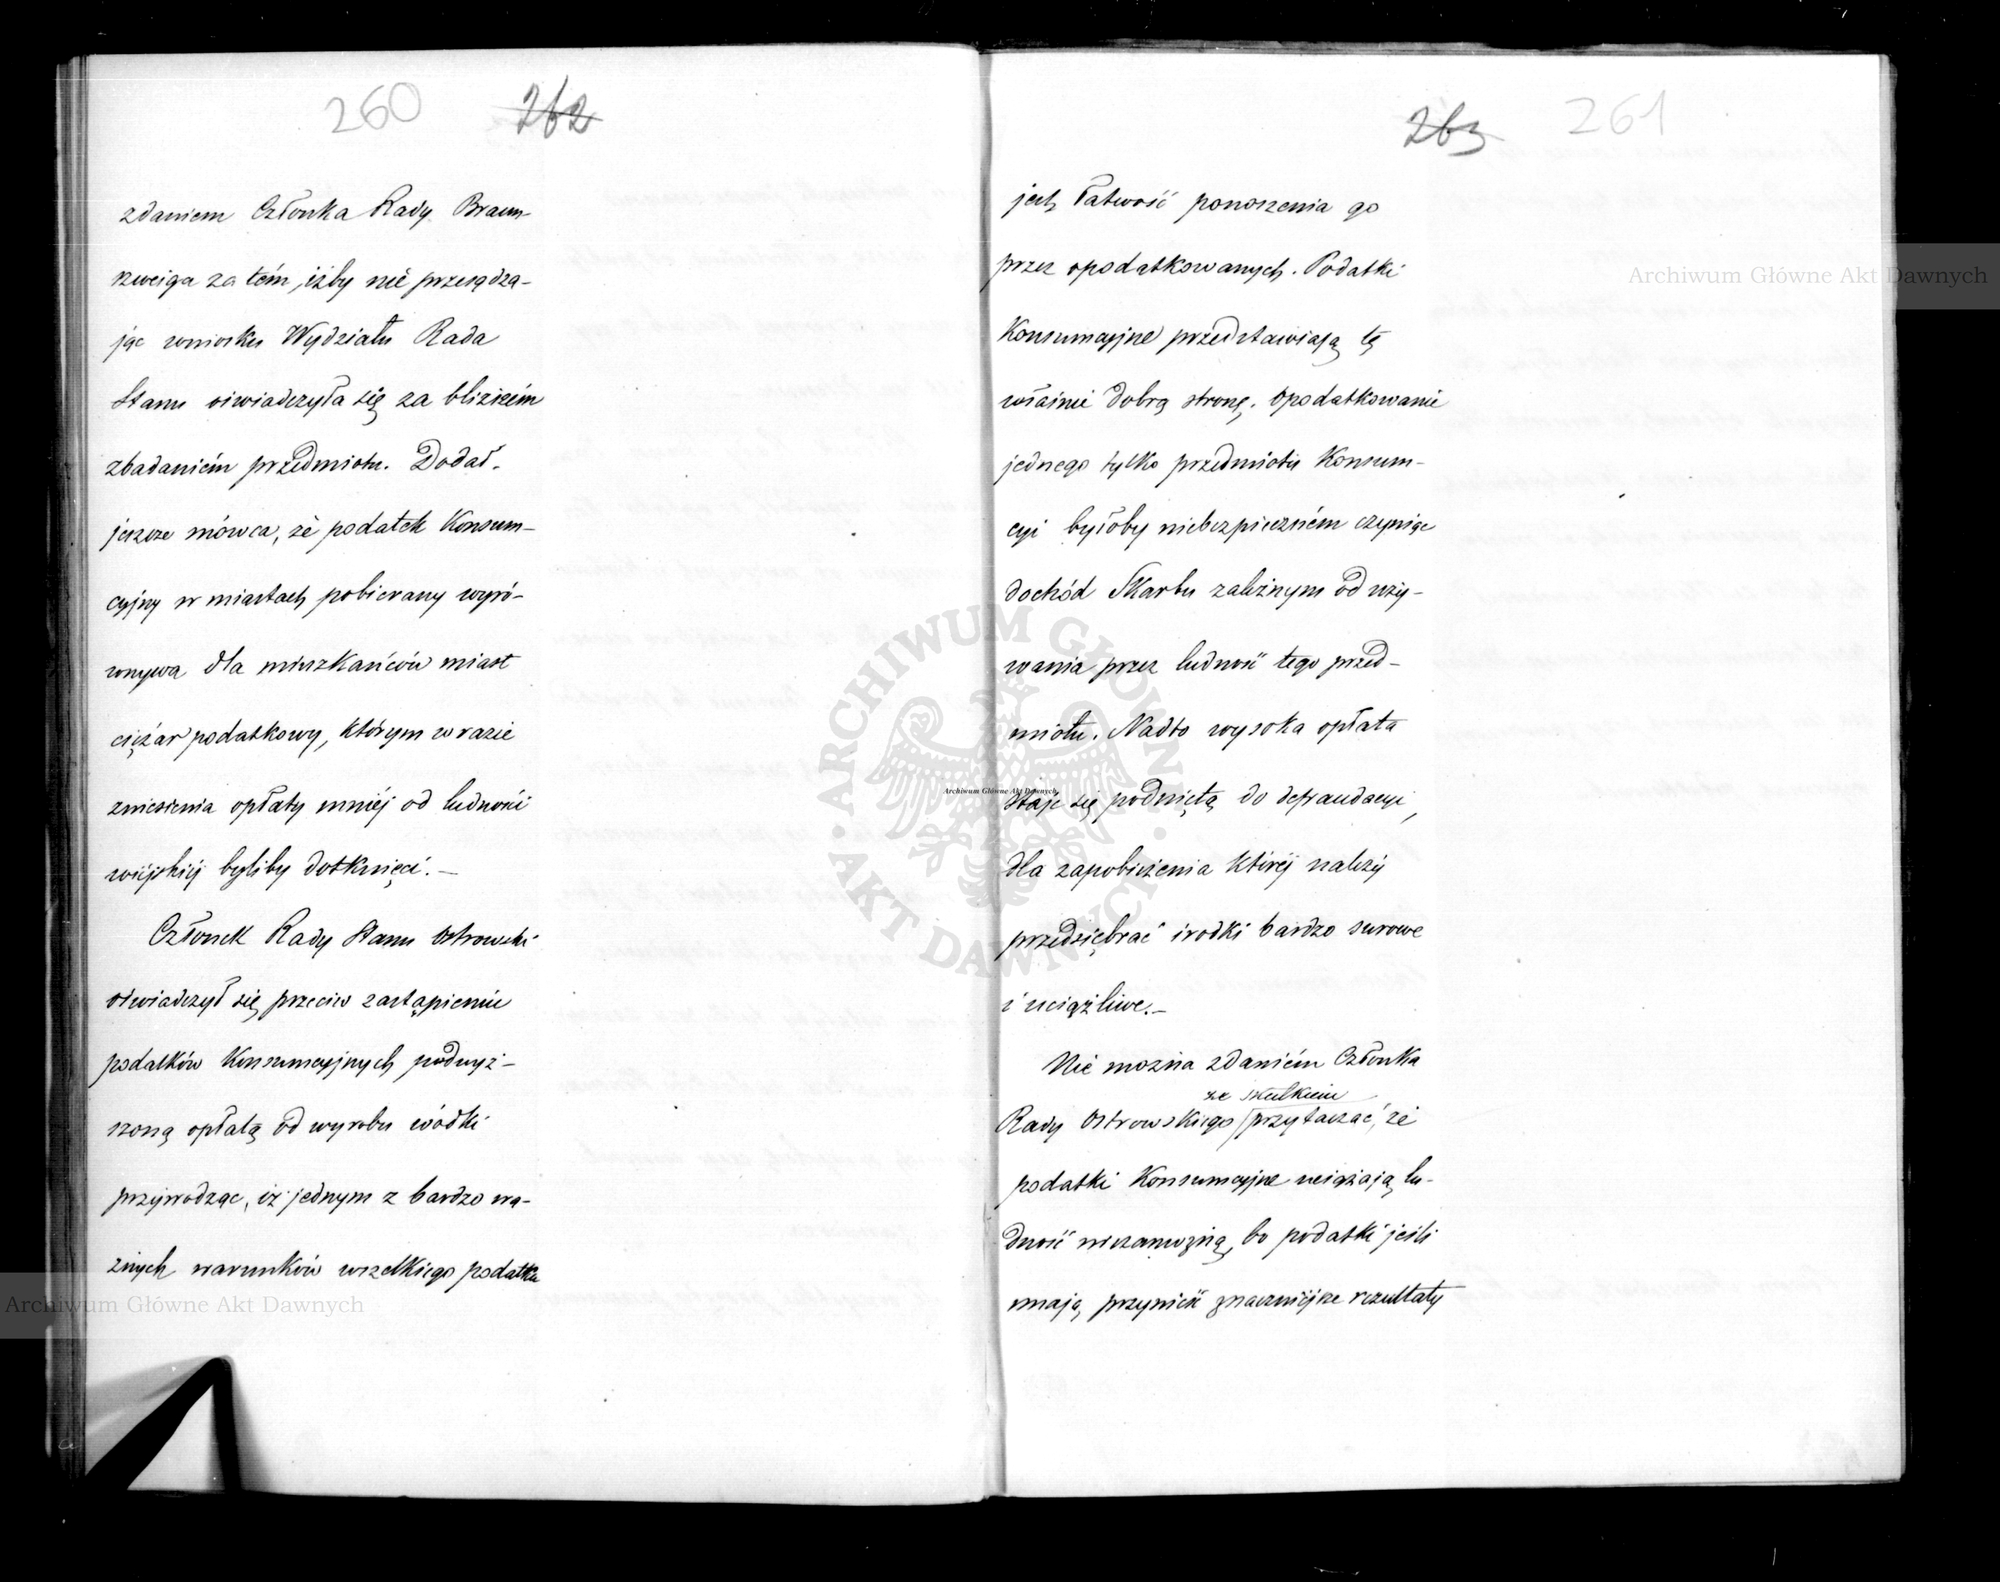 260 262
zdaniem Członka Rady Braun-
szweiga za tém, iżby nie przesądza-
jąc wniosku Wydziału Rada
Stanu oświadczyła się za bliższém
zbadaniem przedmiotu. Dodał
jeszcze mówca, że podatek Konsum-
cyjny w miastach pobierany wyró-
wnywa dla mieszkańców miast
ciężar podatkowy, którym w razie
zniesienia opłaty mniéj od ludności
wiejskiéj byliby dotknięci. —
Członek Rady Stanu Ostrowski
oświadczył się przeciw zastąpieniu
podatków Konsumcyjnych podwyż-
szoną opłatą od wyrobu wódki
przywodząc, iż jednym z bardzo wa-
żnych warunków wszelkiego podatku
263 261
jest łatwość ponoszenia go
przez opodatkowanych. Podatki
Konsumcyjne przedstawiają tę
właśnie dobrą stronę. Opodatkowanie
jednego tylko przedmiotu Konsum-
cyi byłoby niebezpieczném czyniąc
dochód Skarbu zależnym od uży-
wania przez ludność tego przed-
miotu. Nadto wysoka opłata
staje się podnietą do defraudacyi,
dla zapobieżenia któréj należy
przedsiębrać środki bardzo surowe
i uciążliwe. —
Nie można zdaniem Członka
ze skutkiem
Rady Ostrowskiego przytaczać, że
podatki Konsumcyjne uciążają lu-
dność niezamożną, bo podatki jeśli
mają przynieść znaczniejsze rezultaty
Archiwum Główne Akt Dawnych
Archiwum Główne Akt Dawnych
Archiwum Główne Akt Dawnych
ARCHIWUM GŁÓWNE AKT DAWNYCH